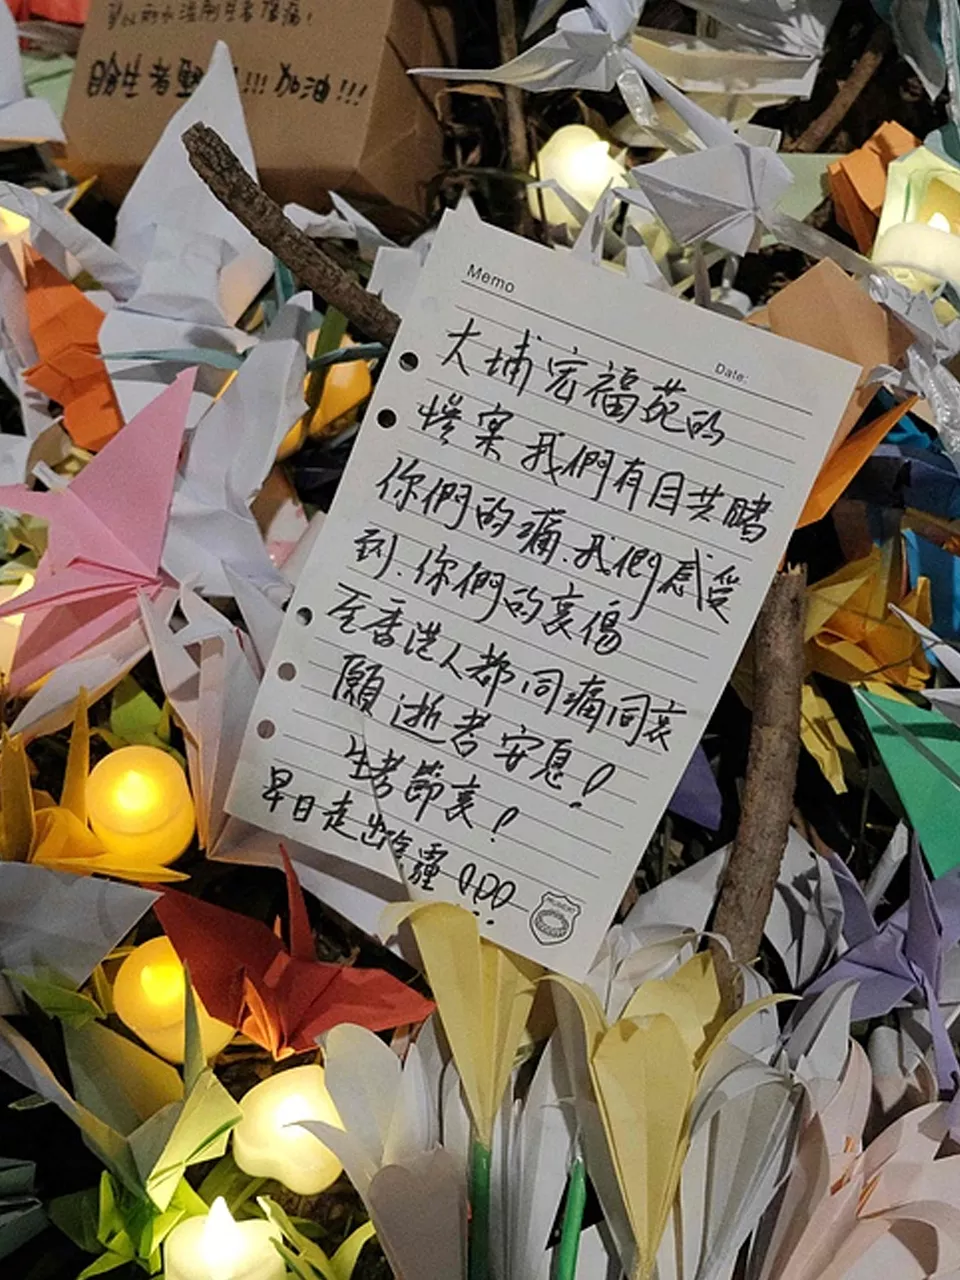 加油!!!
Memo
Date:
大埔宏福苑的
慘案我們有目共睹
你們的痛.我們感受
到.你們的哀傷
至香港人都同痛同哀
願逝者安息!
生者節哀!
早日走出陰霾!!!